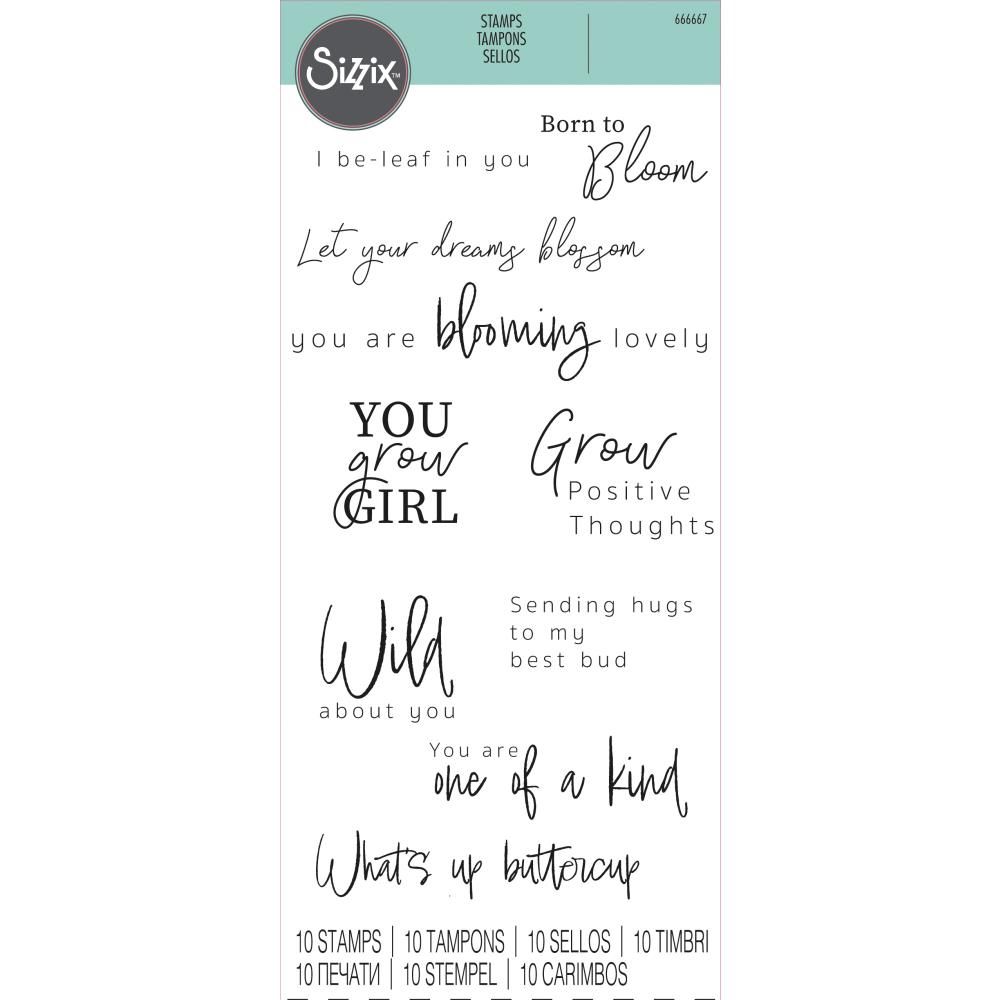 Sizzix™
STAMPS
TAMPONS
SELLOS
666667
Born to
Bloom
I be-leaf in you
Let your dreams blossom
you are blooming lovely
YOU
grow
GIRL
Grow
Positive
Thoughts
Wild
about you
Sending hugs
to my
best bud
You are
one of a kind
What's up buttercup
10 STAMPS | 10 TAMPONS | 10 SELLOS | 10 TIMBRI
10 ПЕЧАТИ | 10 STEMPEL | 10 CARIMBOS